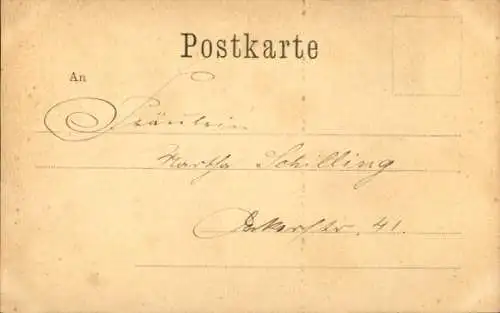 Postkarte
An
Fräulein
Martha Schilling
Ockerstr. 41.